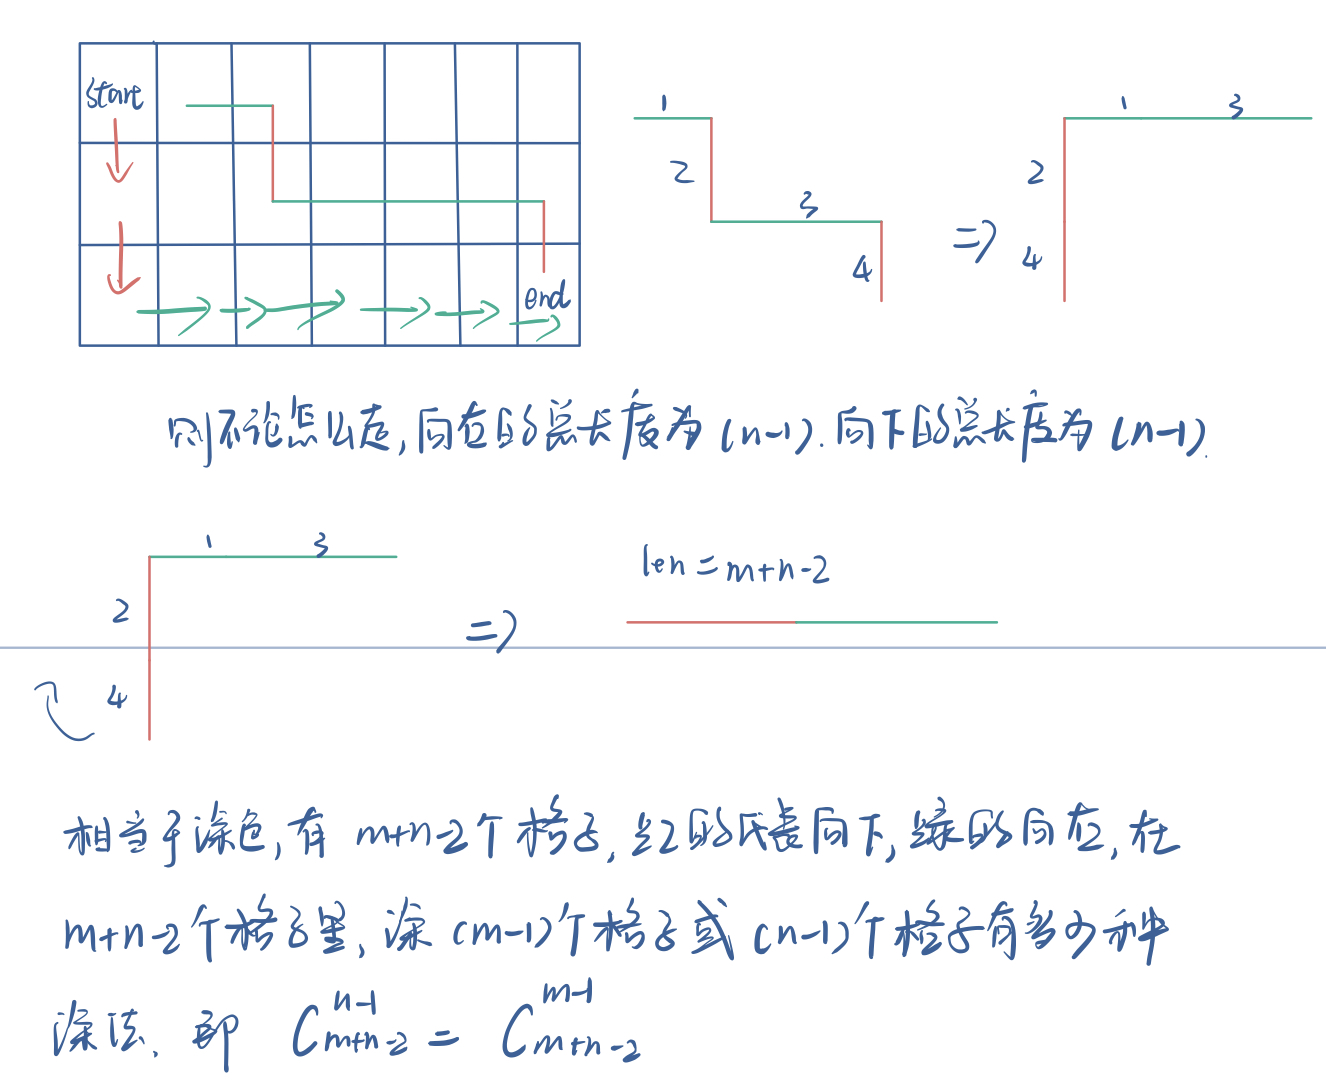 start
end
1
2
3
4
=>
1
3
2
4
则不论怎么走,向右的总长度为(n-1).向下的总长度为(n-1).
1
3
2
4
=>
len=m+n-2
相当于涂色,有 m+n-2个格子,红的代表向下,绿的向右,在
m+n-2个格子里,涂(m-1)个格子或(n-1)个格子有多少种
涂法.即 C_{m+n-2}^{n-1} = C_{m+n-2}^{m-1}